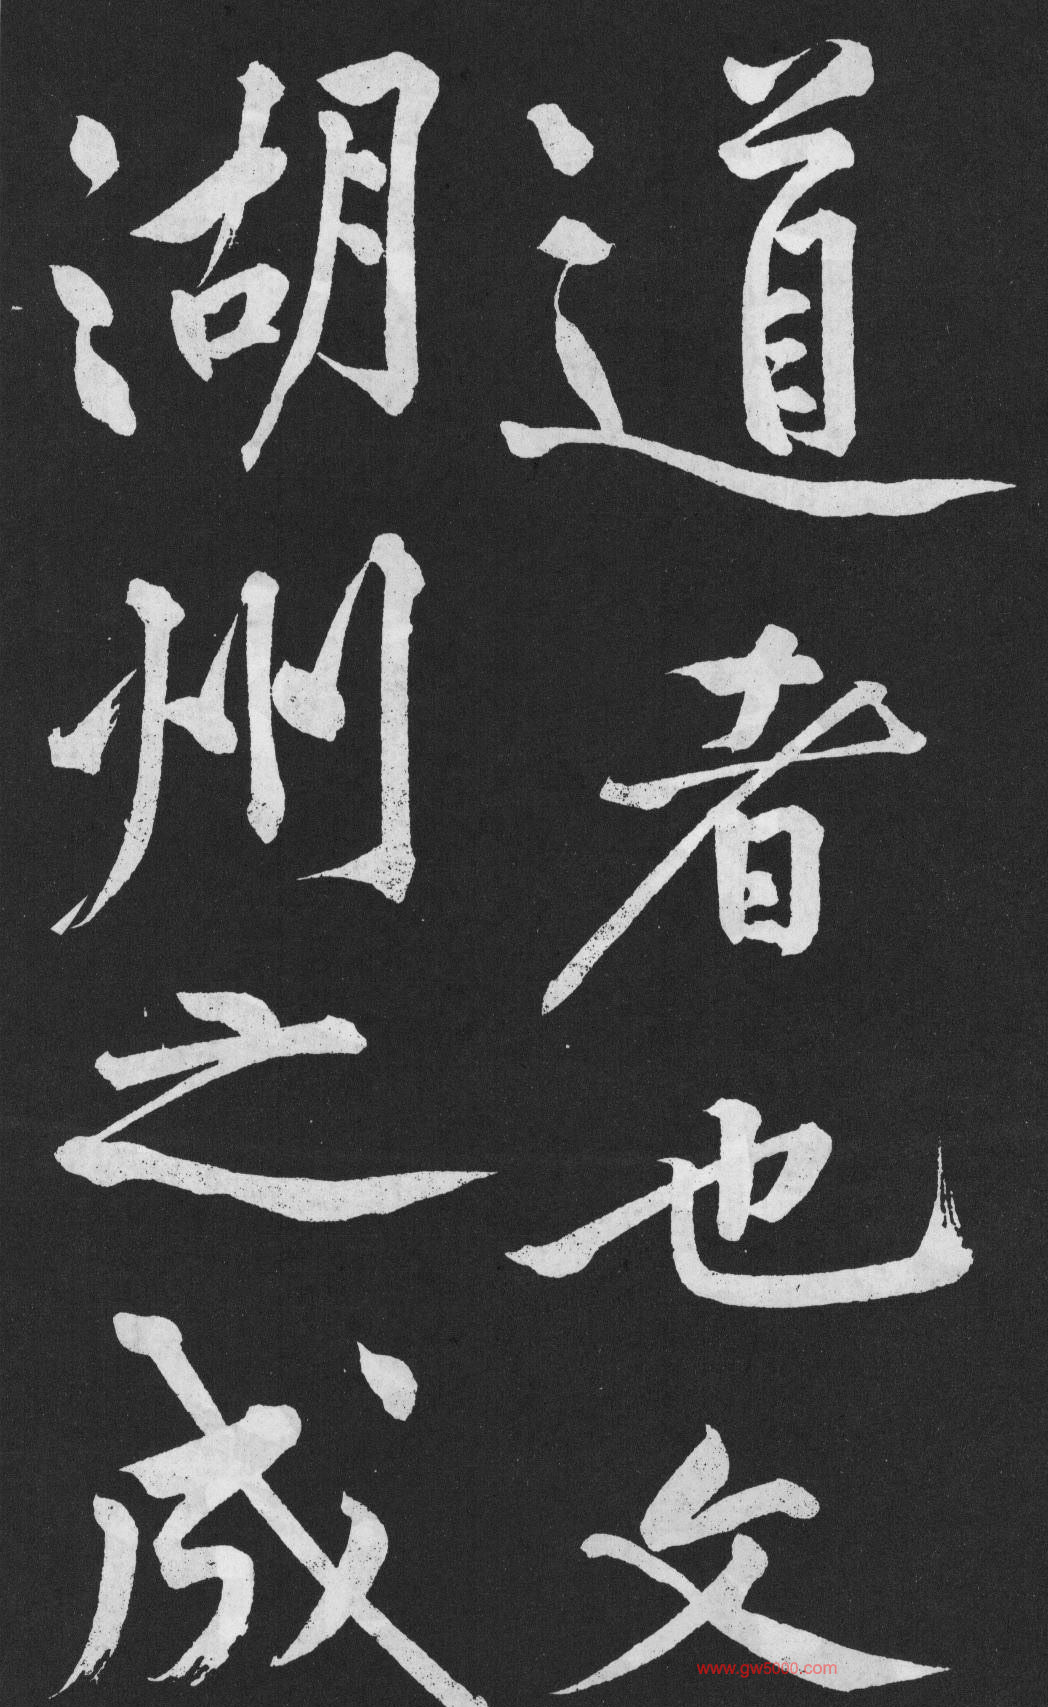 道者也文
湖州之成
www.gw5000.com